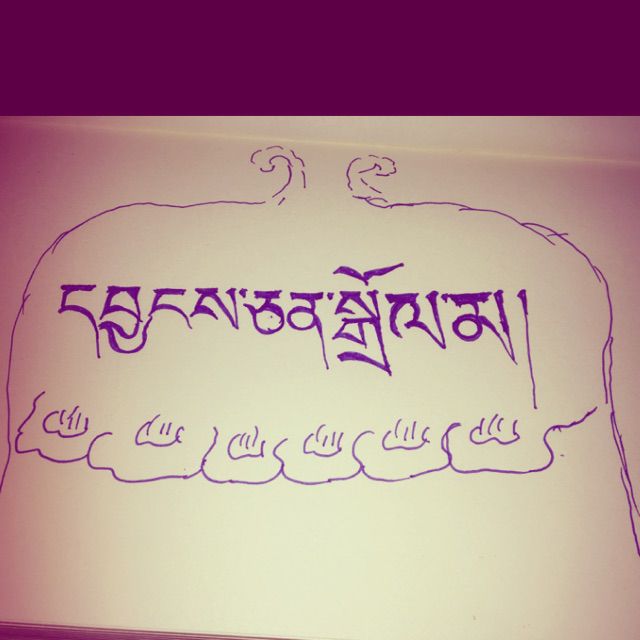 དབྱངས་ཅན་སྒྲོལ་མ།